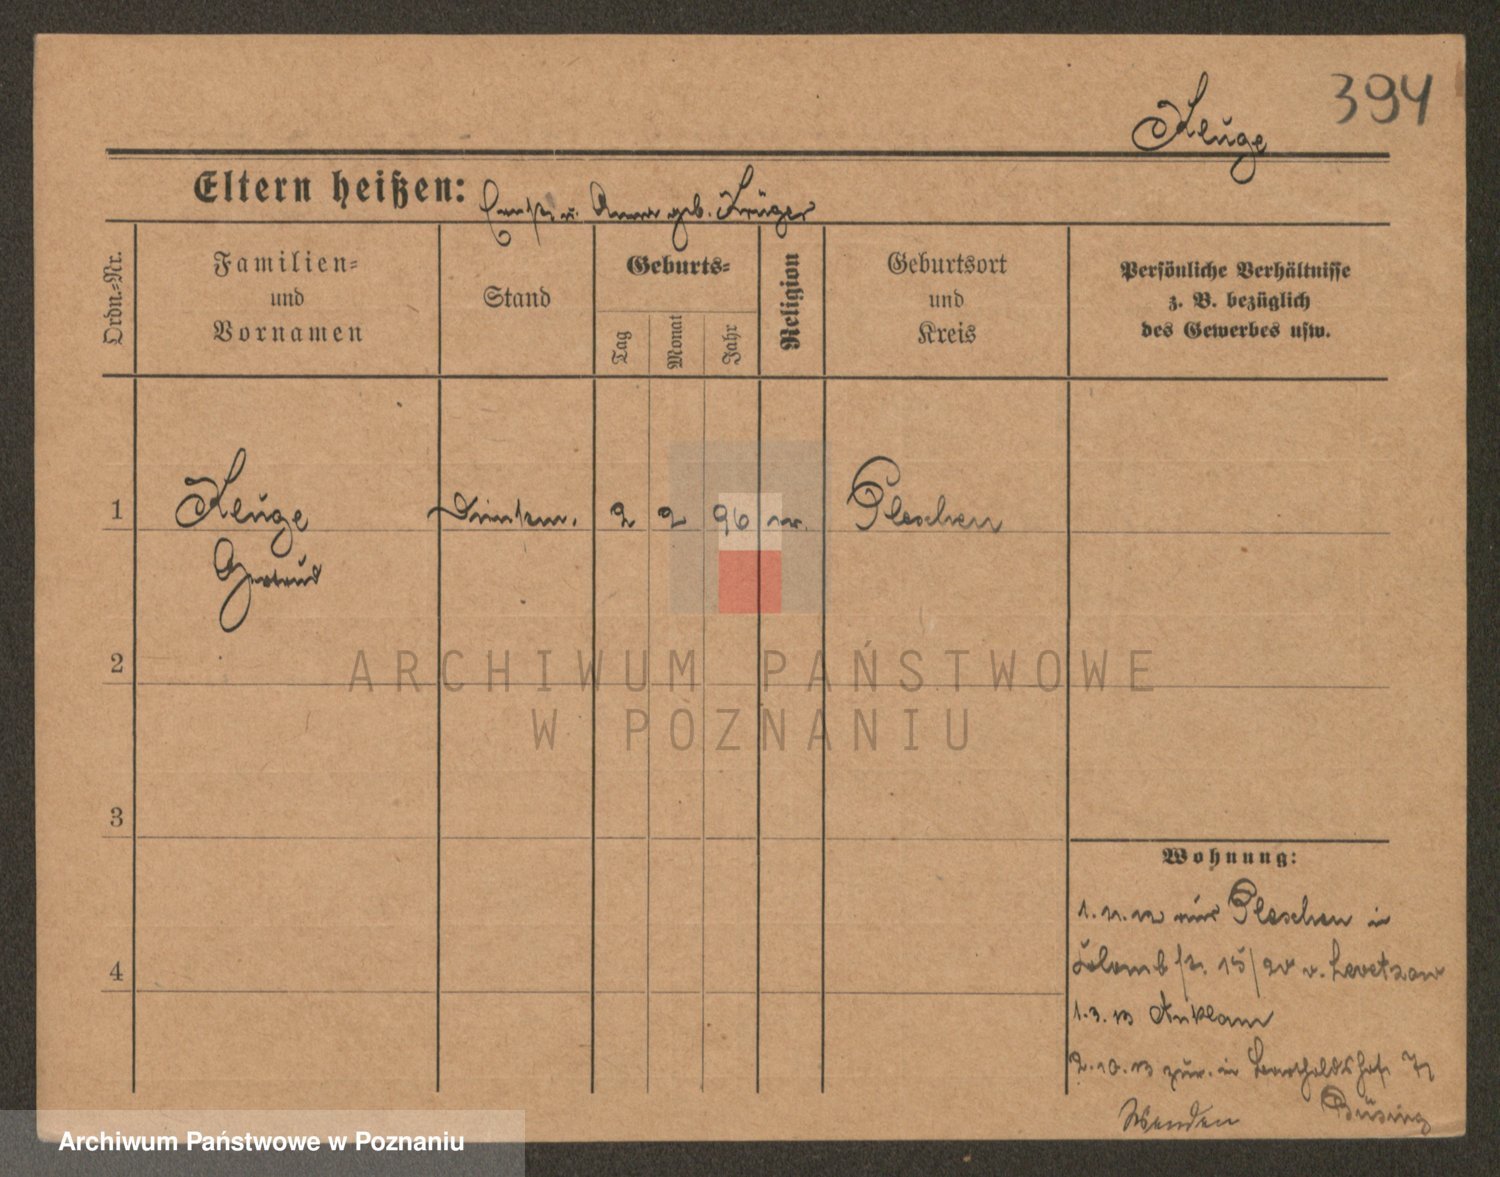 394
Kluge
Eltern heißen:
u. Anna geb. Krüger
Ordn.-Nr.
Familien-
und
Vornamen
Stand
Geburts-
Tag
Monat
Jahr
Religion
Geburtsort
und
Kreis
Persönliche Verhältnisse
z. B. bezüglich
des Gewerbes usw.
1
Kluge
2
2
96
Pleschen
Gertrud
2
3
4
Wohnung:
Pleschen in
15/ v. Levetzow
1.3.13 Anklam
2.10.13 zur. in 
Wenden
Büsing
ARCHIWUM PAŃSTWOWE
W POZNANIU
Archiwum Państwowe w Poznaniu